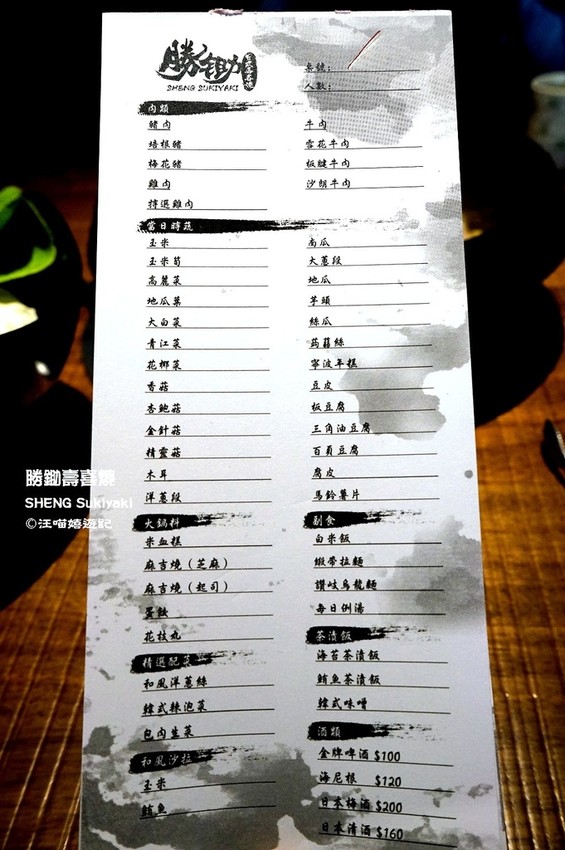 勝鋤
壽喜燒
SHENG SUKIYAKI
桌號:
人數:
肉類
豬肉
培根豬
梅花豬
雞肉
擇選雞肉
牛肉
雪花牛肉
板腱牛肉
沙朗牛肉
當日時蔬
玉米
玉米筍
高麗菜
地瓜葉
大白菜
青江菜
花椰菜
香菇
杏鮑菇
金針菇
精靈菇
木耳
洋蔥段
南瓜
大蔥段
地瓜
芋頭
絲瓜
蒟蒻絲
寧波年糕
豆皮
板豆腐
三角油豆腐
百頁豆腐
腐皮
馬鈴薯片
火鍋料
米血糕
麻吉燒(芝麻)
麻吉燒(起司)
蛋餃
花枝丸
精選配菜
和風洋蔥絲
韓式辣泡菜
包肉生菜
和風沙拉
玉米
鮪魚
副食
白米飯
緞帶拉麵
讚岐烏龍麵
每日例湯
茶漬飯
海苔茶漬飯
鮪魚茶漬飯
韓式味噌
酒類
金牌啤酒 $100
海尼根 $120
日本梅酒 $200
日本清酒 $160
勝鋤壽喜燒
SHENG Sukiyaki
©汪喵嬉遊記